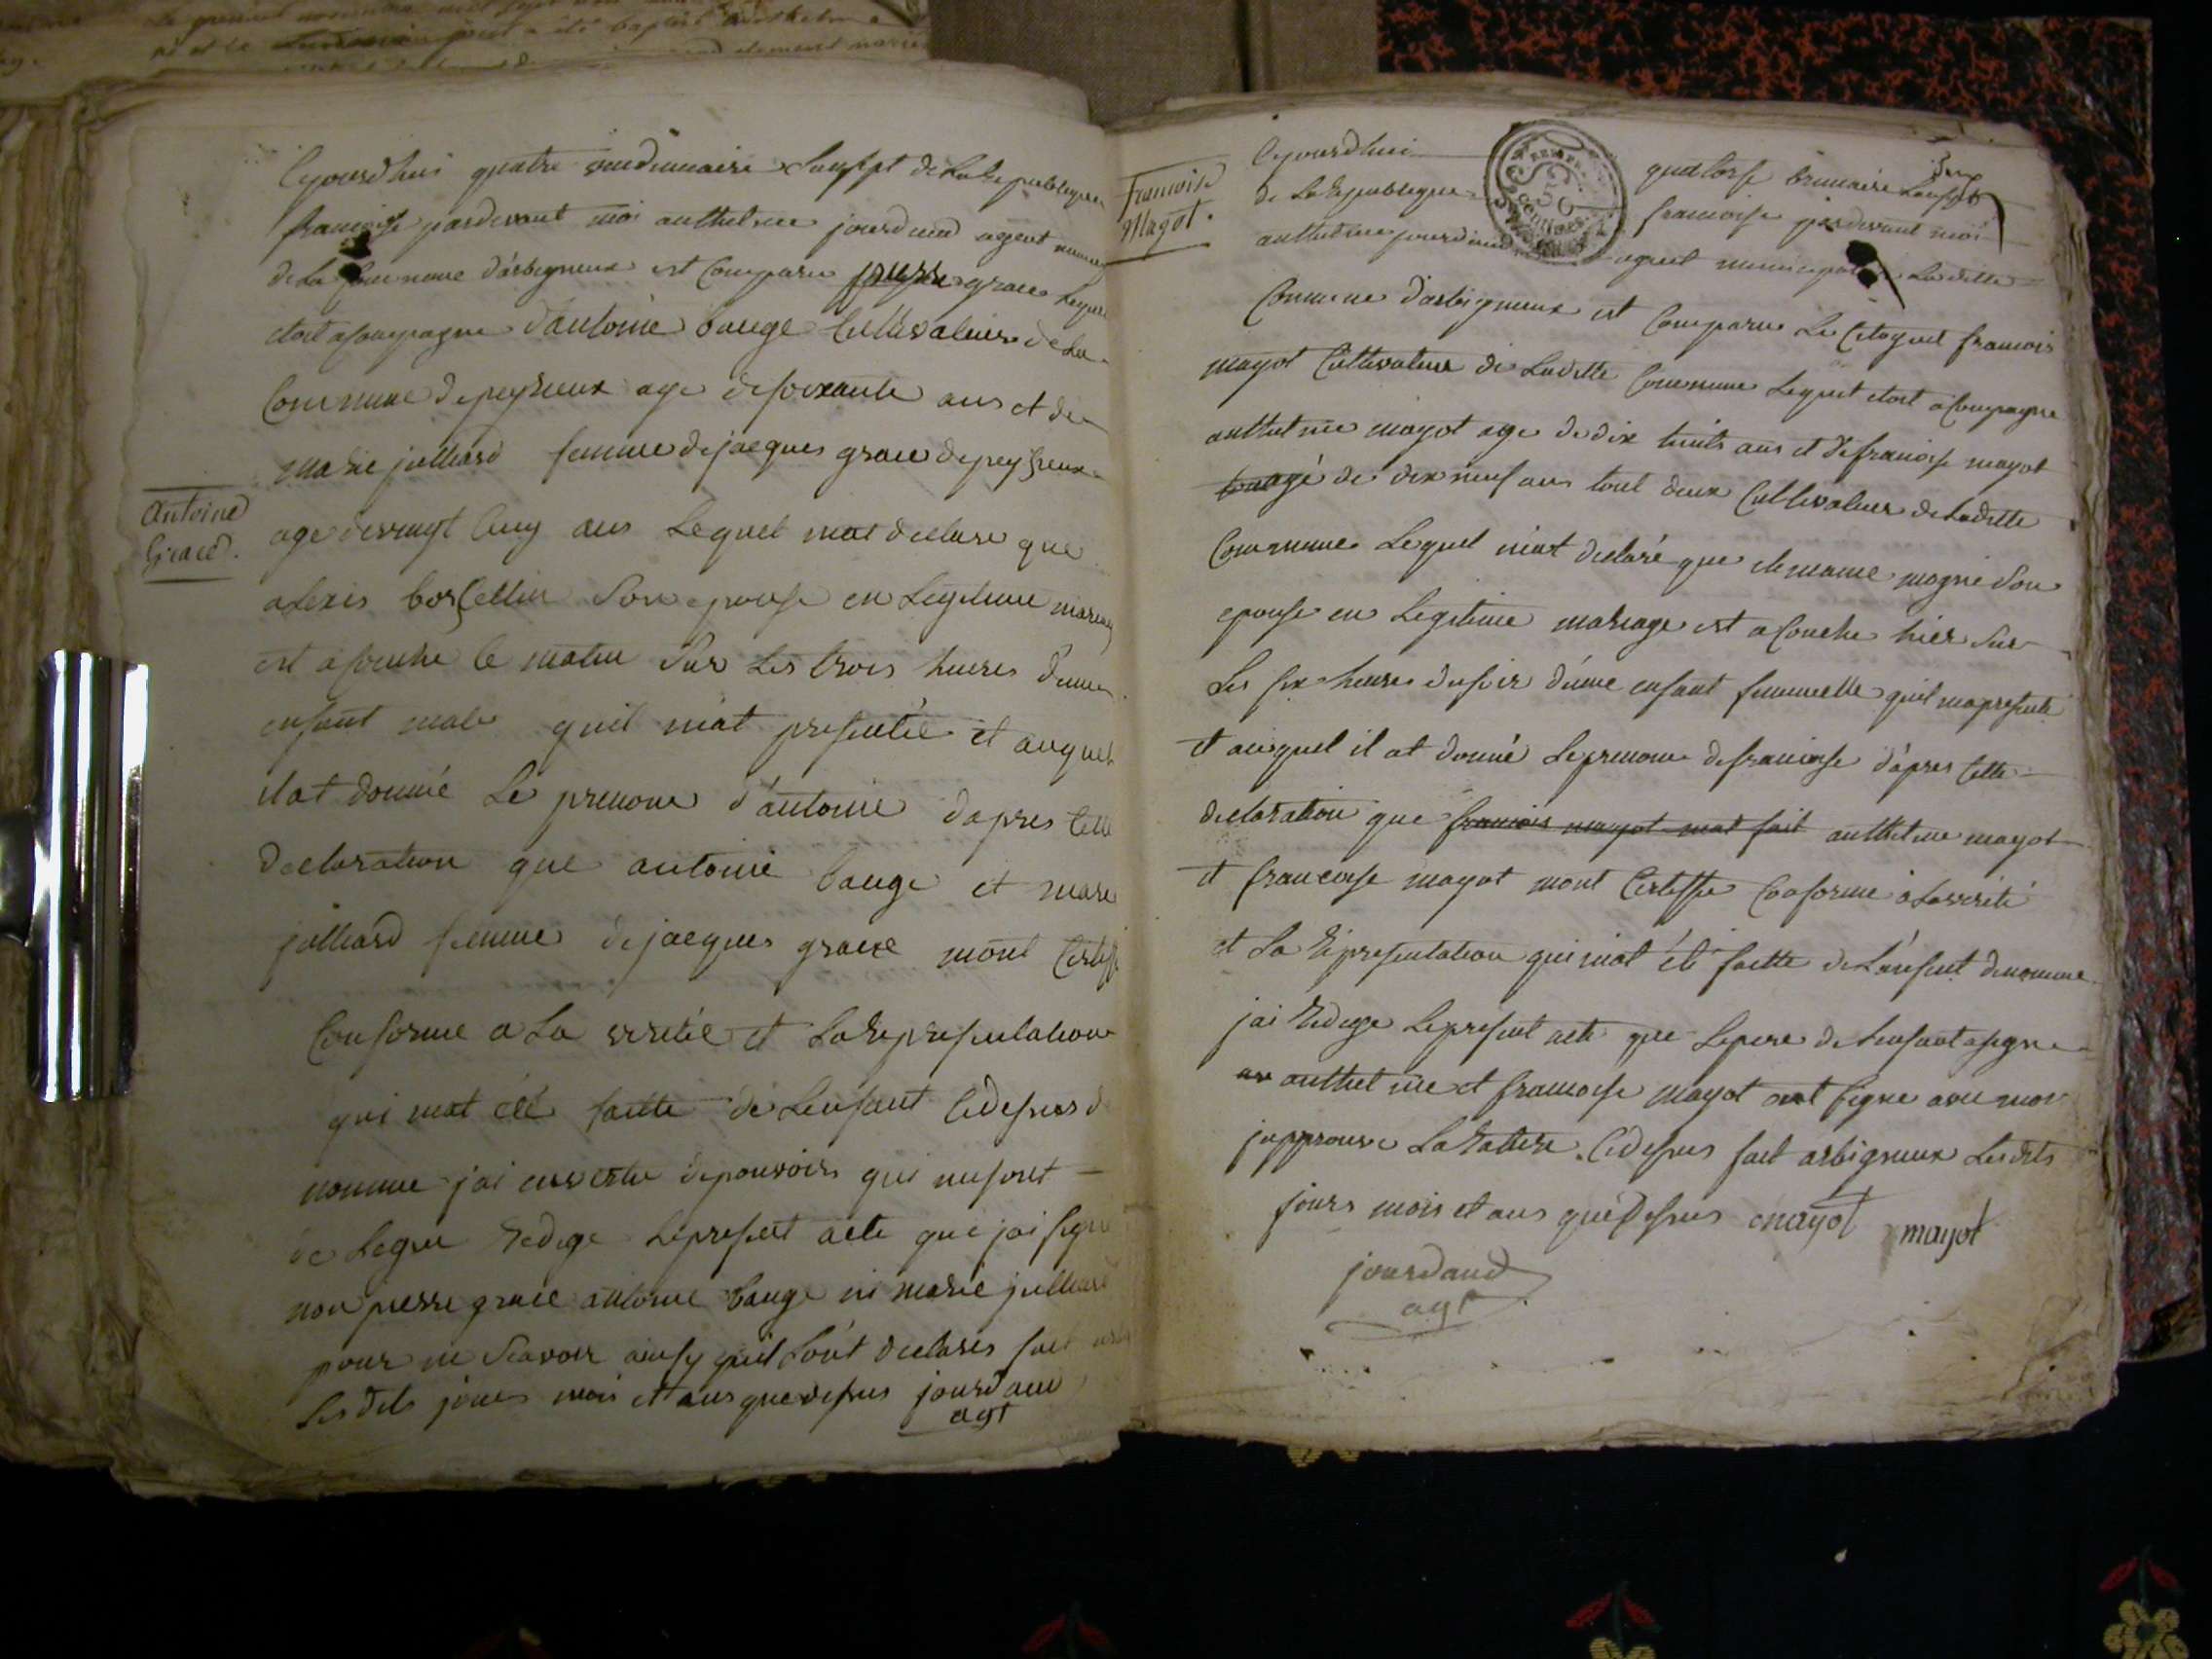 Cejourdhui quatre vendimiaire Lansept de La Republique
francoise pardevant moi anthelme jourdand agent
de La Commune d'arbigneux est Comparu pierre grace Lequel
etoit acompagne d'antoine bauge Cultivateur de La
Commune depeyzieux age desoixante ans et de
marie julliard femme dejacques grace depeyzieux
Antoine
Grace.
age devingt Cinq ans Lequel mat declare que
alexis borcellin Son epouse en Legitime mariage
est acouche Ce matin Sur Les trois heures d'un
enfant male quil m'at presentée et auquel
ilat donnée Le prenom d'antoine dapres Cette
declaration que antoine bauge et marie
julliard femme dejacques grace mont Certiffie
Conforme a La veritée et La Representation
qui mat été faitte de Lenfant Cidessus de
nomme jai envertu depouvoirs qui mesont
de Legue Redige Lepresent acte que jai signe
non pierre grace antoine bauge ni marie julliard
pour ne Scavoir ainsy quil Sont declares fait
Les dits jours mois et ans quedessus jourdand
agt
Francoise
Magot.
Cejourdhui quatorse brumaire Lansept
de La Republique francoise pardevant moi
anthelme jourdand agent municipal de Laditte
Commune d'arbigneux est Comparu Le Citoyent francois
mayot Cultivateur de Laditte Commune Lequel etoit acompagne
anthelme mayot age de dix huits ans et defrancoise mayot
agé de dix neuf ans tout deux Cultivateur deLaditte
Commune Lequel m'at declaré que magnié Son
epouse en Legitime mariage est acouche hier Sur
Les six heures dusoir d'une enfant femmelle quil mapresente
et auquel il at donné Leprenom defrancoise d'apres Cette
declaration que francois mayot mat fait anthelme mayot
et francoise mayot mont Certiffie Conforme aLaverité
et La Representation quimat été faitte deLenfant denomme
jai Redige Lepresent acte que Lepere deLenfant asigne
anthelme et francoise mayot ont signe avec moi
japprouve LaRature Cidessus fait arbigneux Lesdits
jours mois et ans quedessus mayot mayot
jourdand
agt
50
centimes